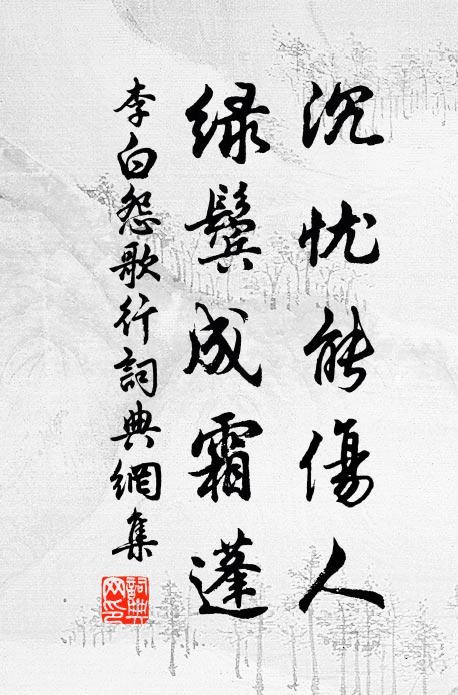 沉忧能傷人
绿鬓成霜蓬
李白怨歌行詞典網集
詞典網印